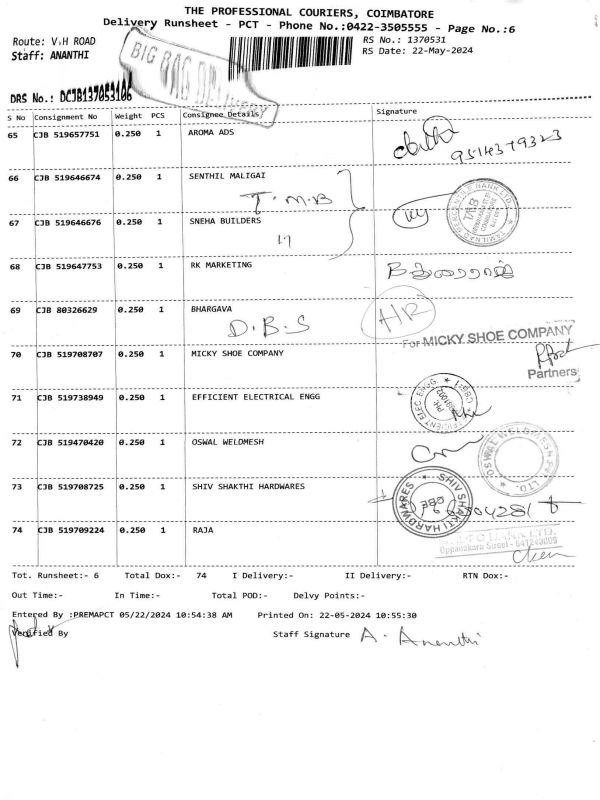 THE PROFESSIONAL COURIERS, COIMBATORE
Delivery Runsheet - PCT - Phone No.:0422-3505555 - Page No.:6
Route: V.H ROAD
RS No.: 1370531
Staff: ANANTHI
RS Date: 22-May-2024
BIG BAG DELIVERY
DRS No.: DCJB137053106
S No Consignment No Weight PCS Consignee Details Signature
65 CJB 519657751 0.250 1 AROMA ADS
9514379323
66 CJB 519646674 0.250 1 SENTHIL MALIGAI
T.M.B
67 CJB 519646676 0.250 1 SNEHA BUILDERS
68 CJB 519647753 0.250 1 RK MARKETING
69 CJB 80326629 0.250 1 BHARGAVA
D.B.S
HR
For MICKY SHOE COMPANY
70 CJB 519708707 0.250 1 MICKY SHOE COMPANY
Partners
71 CJB 519738949 0.250 1 EFFICIENT ELECTRICAL ENGG
72 CJB 519470420 0.250 1 OSWAL WELDMESH
73 CJB 519708725 0.250 1 SHIV SHAKTHI HARDWARES
SHIV SHAKTI HARDWARES
CBE
74 CJB 519709224 0.250 1 RAJA
Oppanakara Street - 641249009
Tot. Runsheet:- 6 Total Dox:- 74 I Delivery:- II Delivery:- RTN Dox:-
Out Time:- In Time:- Total POD:- Delvy Points:-
Entered By :PREMAPCT 05/22/2024 10:54:38 AM Printed On: 22-05-2024 10:55:30
Verified By Staff Signature A. Ananthi